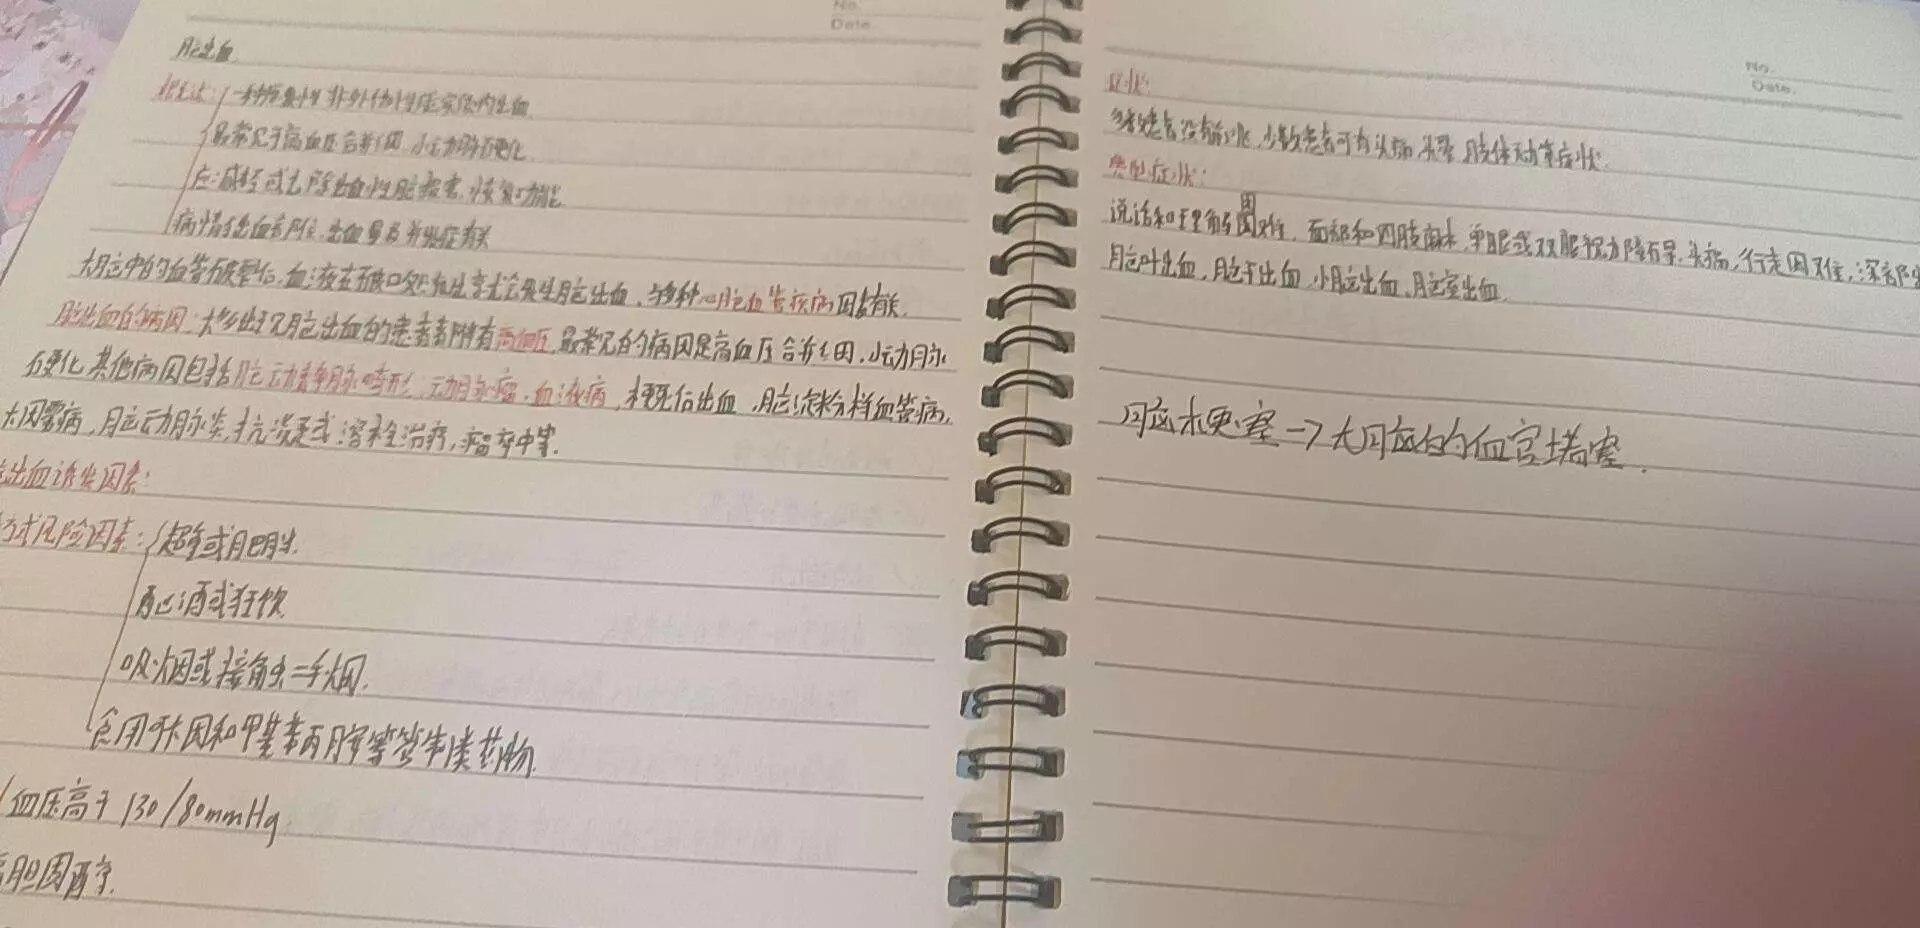 No.
Date.
脑出血
概述：一种原发性非外伤性脑实质内出血
最常见于高血压合并细、小动脉硬化
应减轻或去除出血性脑损害，恢复功能
病情轻出血部位、出血量及并发症有关
大脑中的血管破裂后，血液在破口处流出等就会发生脑出血，与多种心脑血管疾病因素有关
脑出血的病因：大多出现脑出血的患者都有高血压，最常见的病因是高血压合并细、小动脉
硬化，其他病因包括脑动静脉畸形，动脉瘤，血液病，梗死后出血，脑淀粉样血管病，
大因雾病，脑动脉炎，抗凝或溶栓治疗，瘤卒中等.
出血诱发因素：
方式风险因素：超重或肥胖
酗酒或狂饮
吸烟或接触二手烟.
食用可卡因和甲基苯丙胺等管制类药物.
血压高于130/80mmHg
高胆固醇
No.
Date.
症状：
多数患者没有前兆，少数患者可有头痛，头晕，肢体无力等症状.
典型症状：
说话和理解困难，面部和四肢麻木，单眼或双眼视力障碍，头痛，行走困难，深部
脑叶出血，脑干出血，小脑出血，脑室出血
脑梗塞→大脑的血管堵塞.